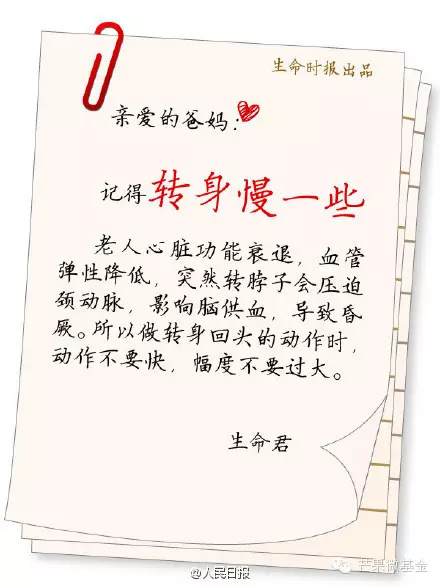 生命时报出品
亲爱的爸妈:
记得转身慢一些
老人心脏功能衰退，血管
弹性降低，突然转脖子会压迫
颈动脉，影响脑供血，导致昏
厥。所以做转身回头的动作时，
动作不要快，幅度不要过大。
生命君
@人民日报
芒果微基金